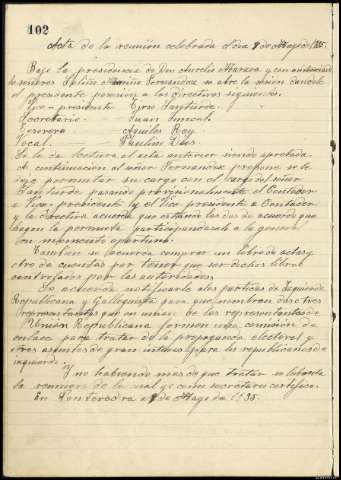 102
Acta de la reunión celebrada el dia 8 de Mayo de 1935.
Bajo la presidencia de Don Aurelio y con asistencia
de señores Fernandez se abre la sesión dandole
el presidente posesión a los directivos siguientes.
Vice-presidente Eliseo Santurde.
Secretario. Juan
Tesorero Aquiles Rey.
Vocal. Paulino Dios.
Se le da lectura al acta anterior siendo aprobada.
A continuación el señor Fernandez propone se le
deje permutar su cargo con el cargo del señor
Santurde pasando provisionalmente el Contador
a Vice-presidente y el Vice presidente a Contador
y la directiva acuerda que estando los dos de acuerdo que
hagan la permuta participandosela a la general
en su momento oportuno.
Tambien se acuerda comprar un libro de actas y
otro de cuentas por tener que ser dichos libros
controlados por las autoridades.
Se acuerda notificarle a los partidos de Izquierda
Republicana y Galleguista para que nombren dos o tres
representantes que en union de los representantes de
Unión Republicana formen una comisión de
enlace para tratar de la propaganda electoral y
otros asuntos de gran interes para los republicanos de
izquierda.
Y no habiendo mas de que tratar se levanta
la reunion de la cual yo como secretario certifico.
En Pontevedra a 8 de Mayo de 1935.